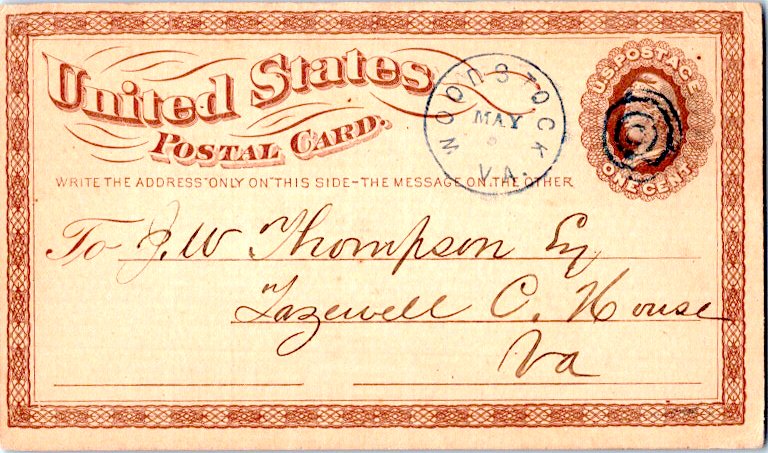 United States
POSTAL CARD.
WOODSTOCK
MAY
VA.
U.S. POSTAGE
ONE CENT
WRITE THE ADDRESS ONLY ON THIS SIDE–THE MESSAGE ON THE OTHER
To J.W Thompson Eq
Tazewell C. House
Va